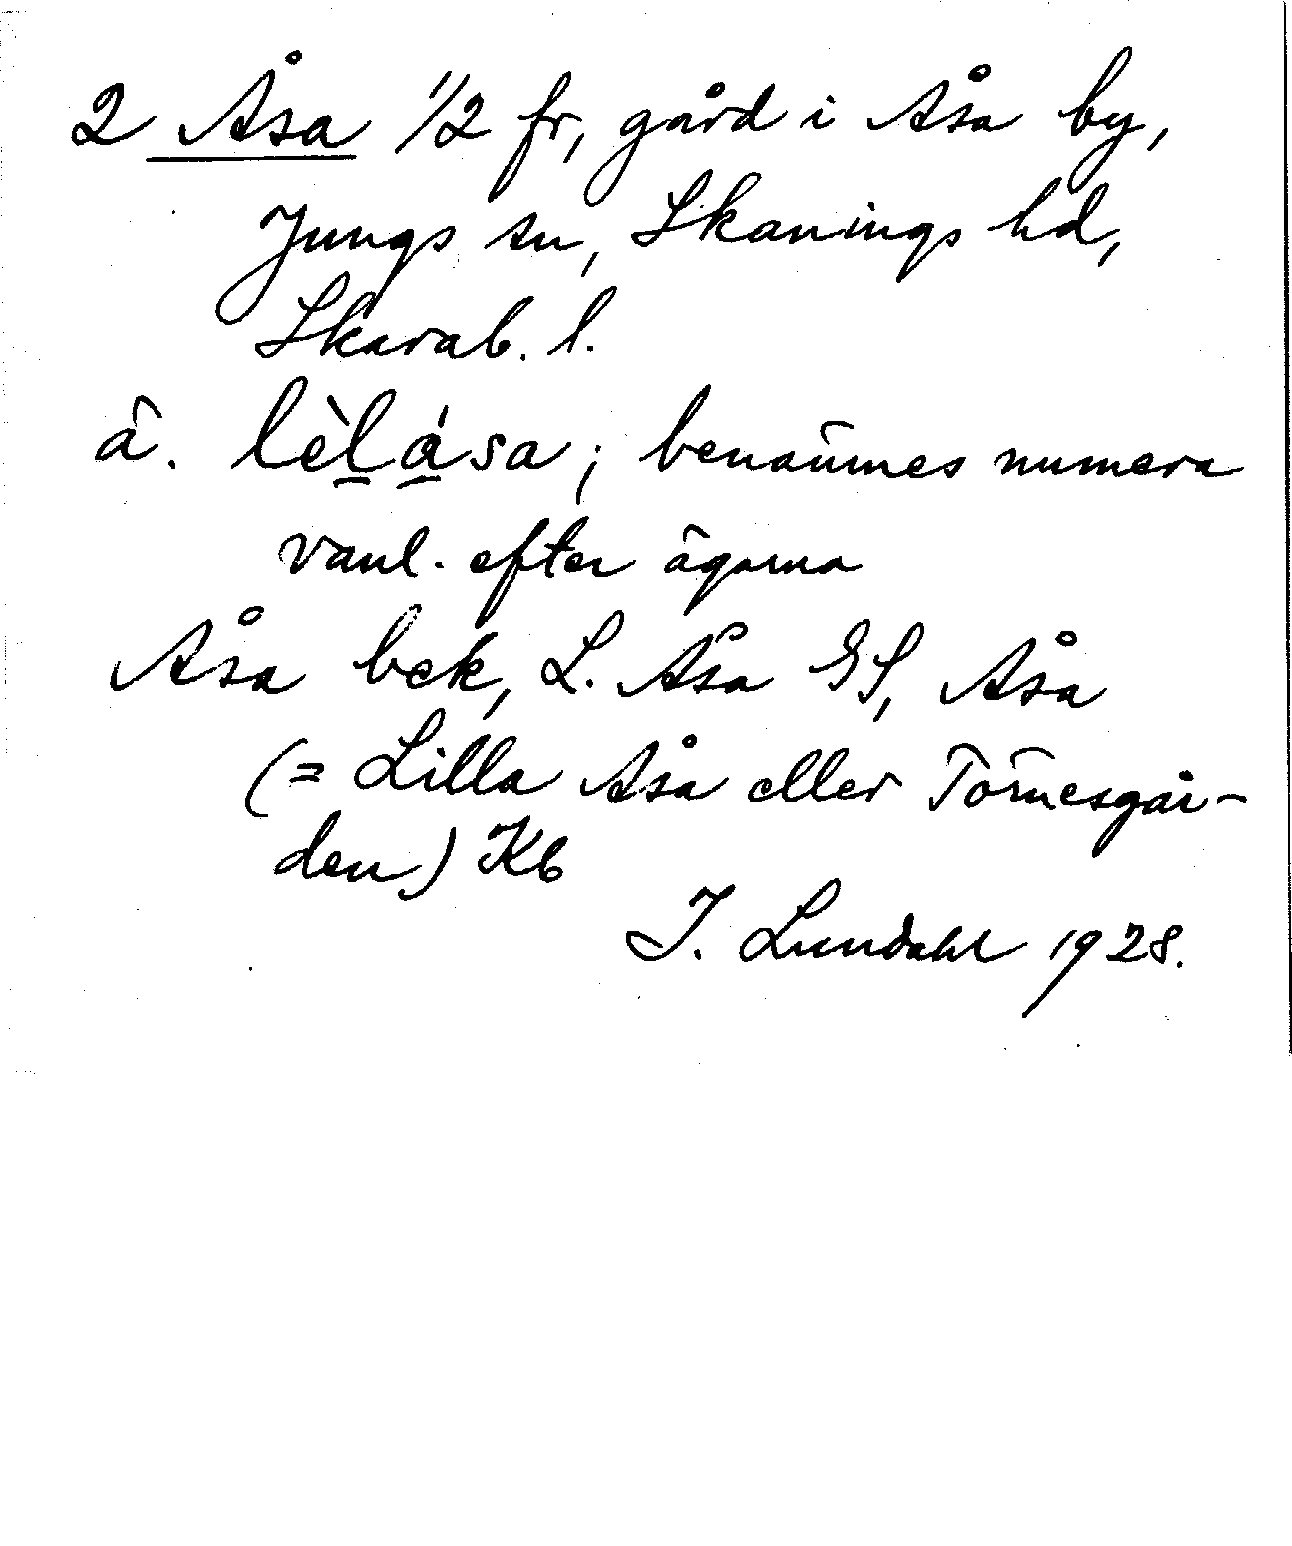 2 Åsa 1/2 fr, gård i Åsa by,
Jungs sn, Skanings hd,
Skarab. l.
ä. lèlása; benämnes numera
vanl. efter ägarna
Åsa bek, L. Åsa GS, Åsa
(= Lilla Åsa eller Törnesgår-
den) Kb
I. Lundahl 1928.